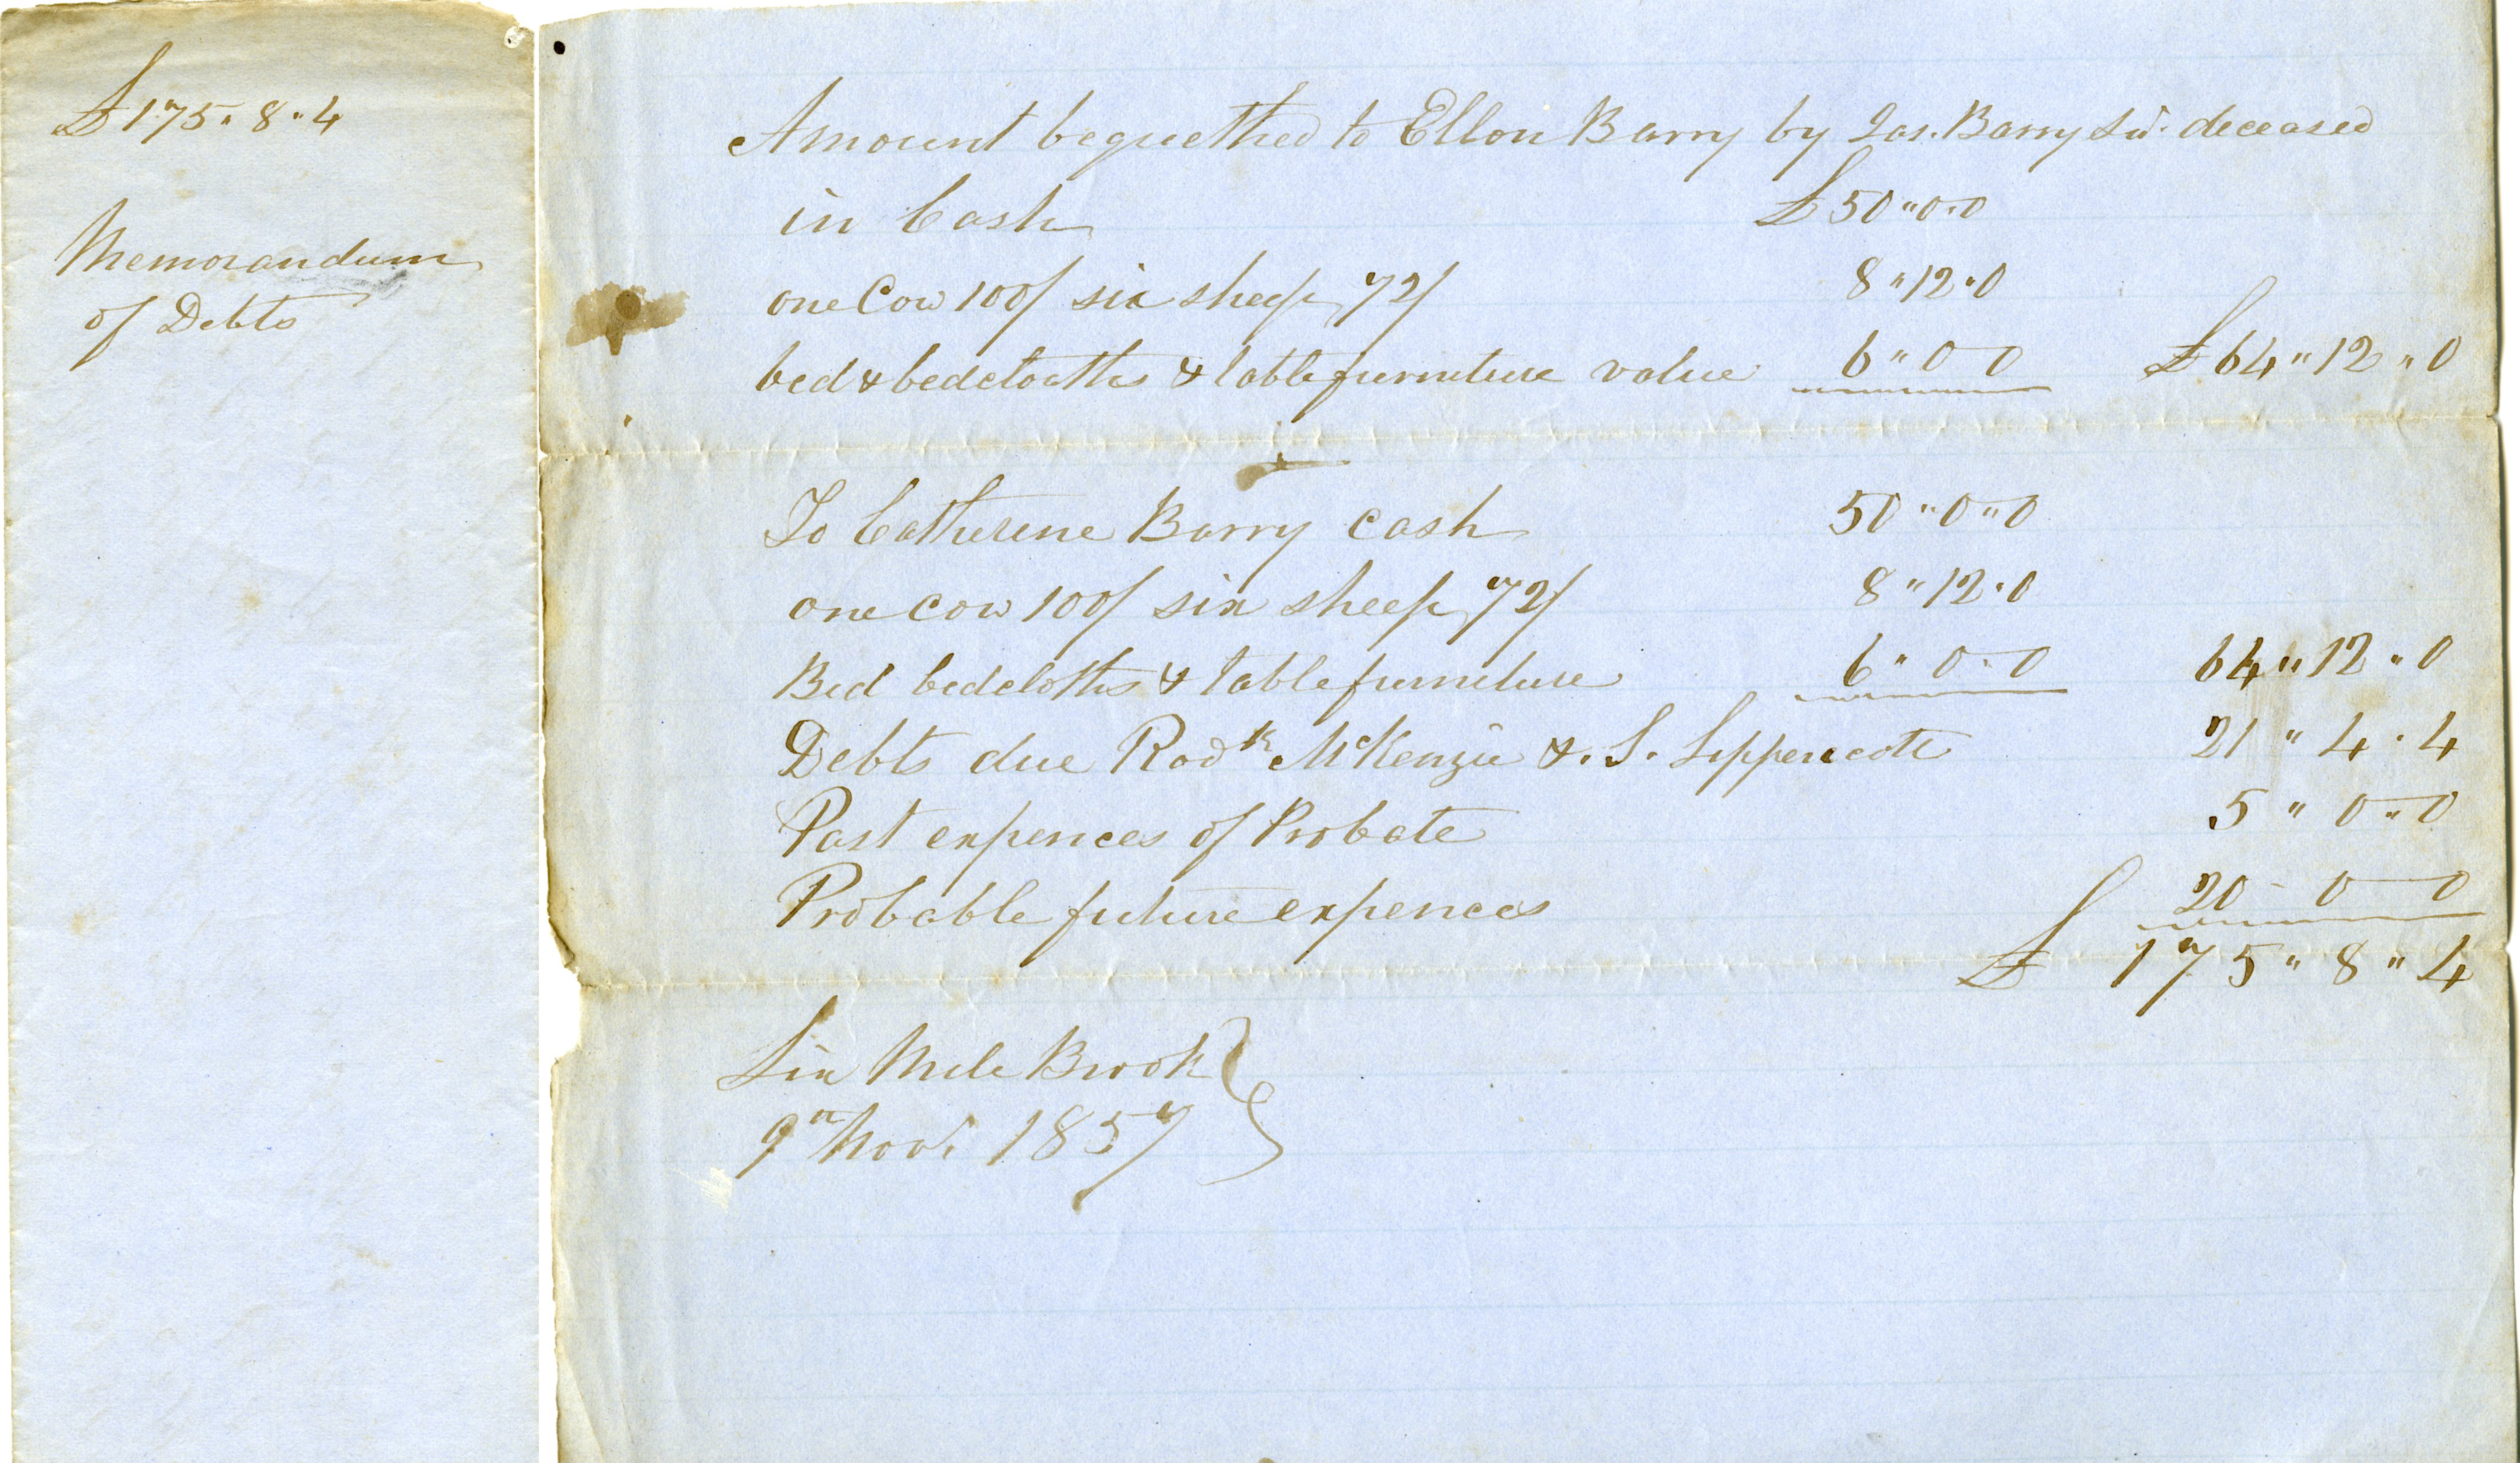 £175 " 8 " 4
Memorandum
of Debts
Amount bequethed to Ellon Barry by Jas. Barry Sr. deceased
in Cash £50 " 0 " 0
one Cow 100/ six sheep 72/ 8 " 12 " 0
bed & bedcloaths & table furniture value 6 " 0 0 £64 " 12 " 0
To Catherine Barry Cash 50 " 0 " 0
one cow 100/ six sheep 72/ 8 " 12 " 0
Bed bedcloths & table furniture 6 " 0 " 0 64 " 12 " 0
Debts due Rodk McKenzie & S. Lippencott 21 " 4 " 4
Past expences of Probate 5 " 0 " 0
Probable future expences 20 - 0 0
£ 175 " 8 " 4
Six Mile Brook
9th Novr 1857